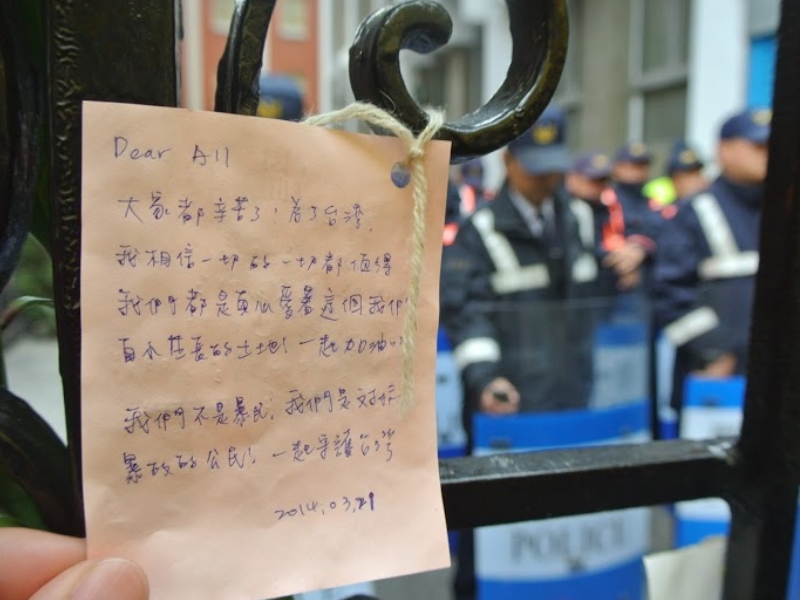 Dear All
大家都辛苦了！為了台灣,
我相信一切的一切都值得
我們都是真心愛著這個我們
自小茁長的土地！一起加油!!
我們不是暴民，我們是對抗
暴政的公民！一起守護台灣
2014.03.21
POLICE